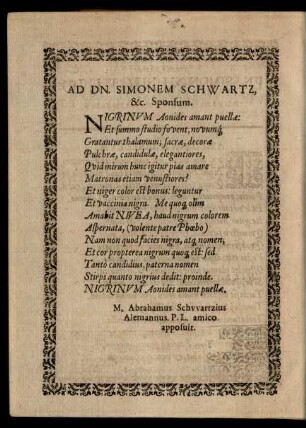 AD DN. SIMONEM SCHWARTZ,
&c. Sponsum.
NIGRINVM Aonides amant puellæ:
Et summo studio fovent, novumq́
Gratantur thalamum; sacræ, decoræ
Pulchræ, candidulæ, elegantiores,
Qvid mirùm hunc igitur pias amare
Matronas etiam venustiores?
Et niger color est bonus: leguntur
Et vaccinia nigra. Me quoq́ olim
Amabit NIVEA, haud nigrum colorem
Aspernata, (volente patre Phœbo)
Nam non quod facies nigra, atq́ nomen,
Et cor propterea nigrum quoq́ est: sed
Tantò candidius, paterna nomen
Stirps quanto nigrius dedit: proinde.
NIGRINVM Aonides amant puellæ.
M. Abrahamus Schvvartzius
Alemannus. P. L. amico
apposuit.